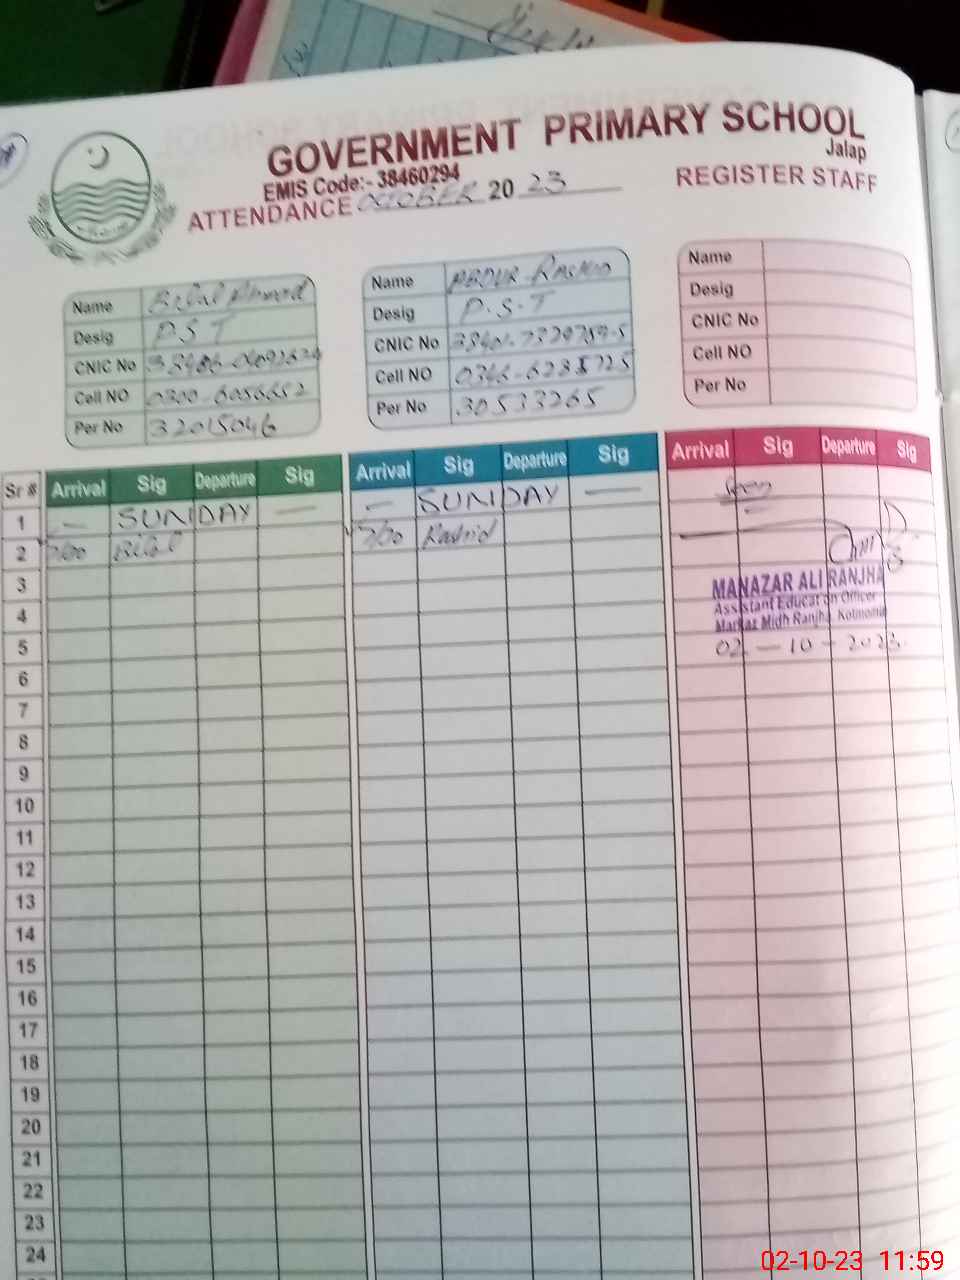 GOVERNMENT PRIMARY SCHOOL
Jalap
EMIS Code:- 38460294
ATTENDANCE OCTOBER 20 23 REGISTER STAFF
Name Bilal Ahmad
Desig P.S.T
CNIC No
Cell NO 0300-6056652
Per No 32015046
Name ABDUR RASHID
Desig P.S.T
CNIC No
Cell NO
Per No 30533265
Name
Desig
CNIC No
Cell NO
Per No
Sr # Arrival Sig Departure Sig Arrival Sig Departure Sig Arrival Sig Departure Sig
1 — SUNDAY — — SUNDAY — Seen
2 7/00 Bilal 7/00 Rashid
3
MANAZAR ALI RANJHA
4
Assistant Education Officer
Markaz Midh Ranjha, Kotmomin
5
02 - 10 - 2023.
6
7
8
9
10
11
12
13
14
15
16
17
18
19
20
21
22
23
24
02-10-23 11:59